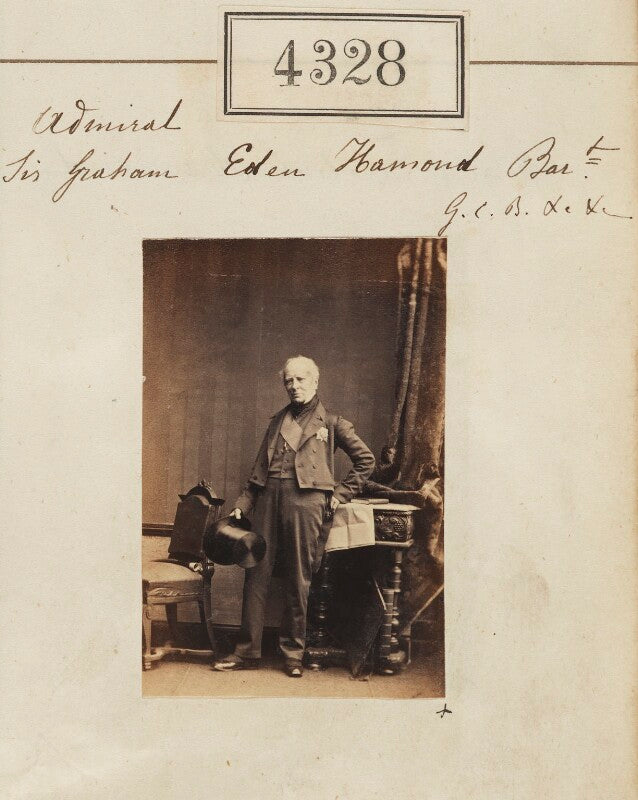 4328
Admiral
Sir Graham Eden Hamond Bar.t
G. C. B. &c &c